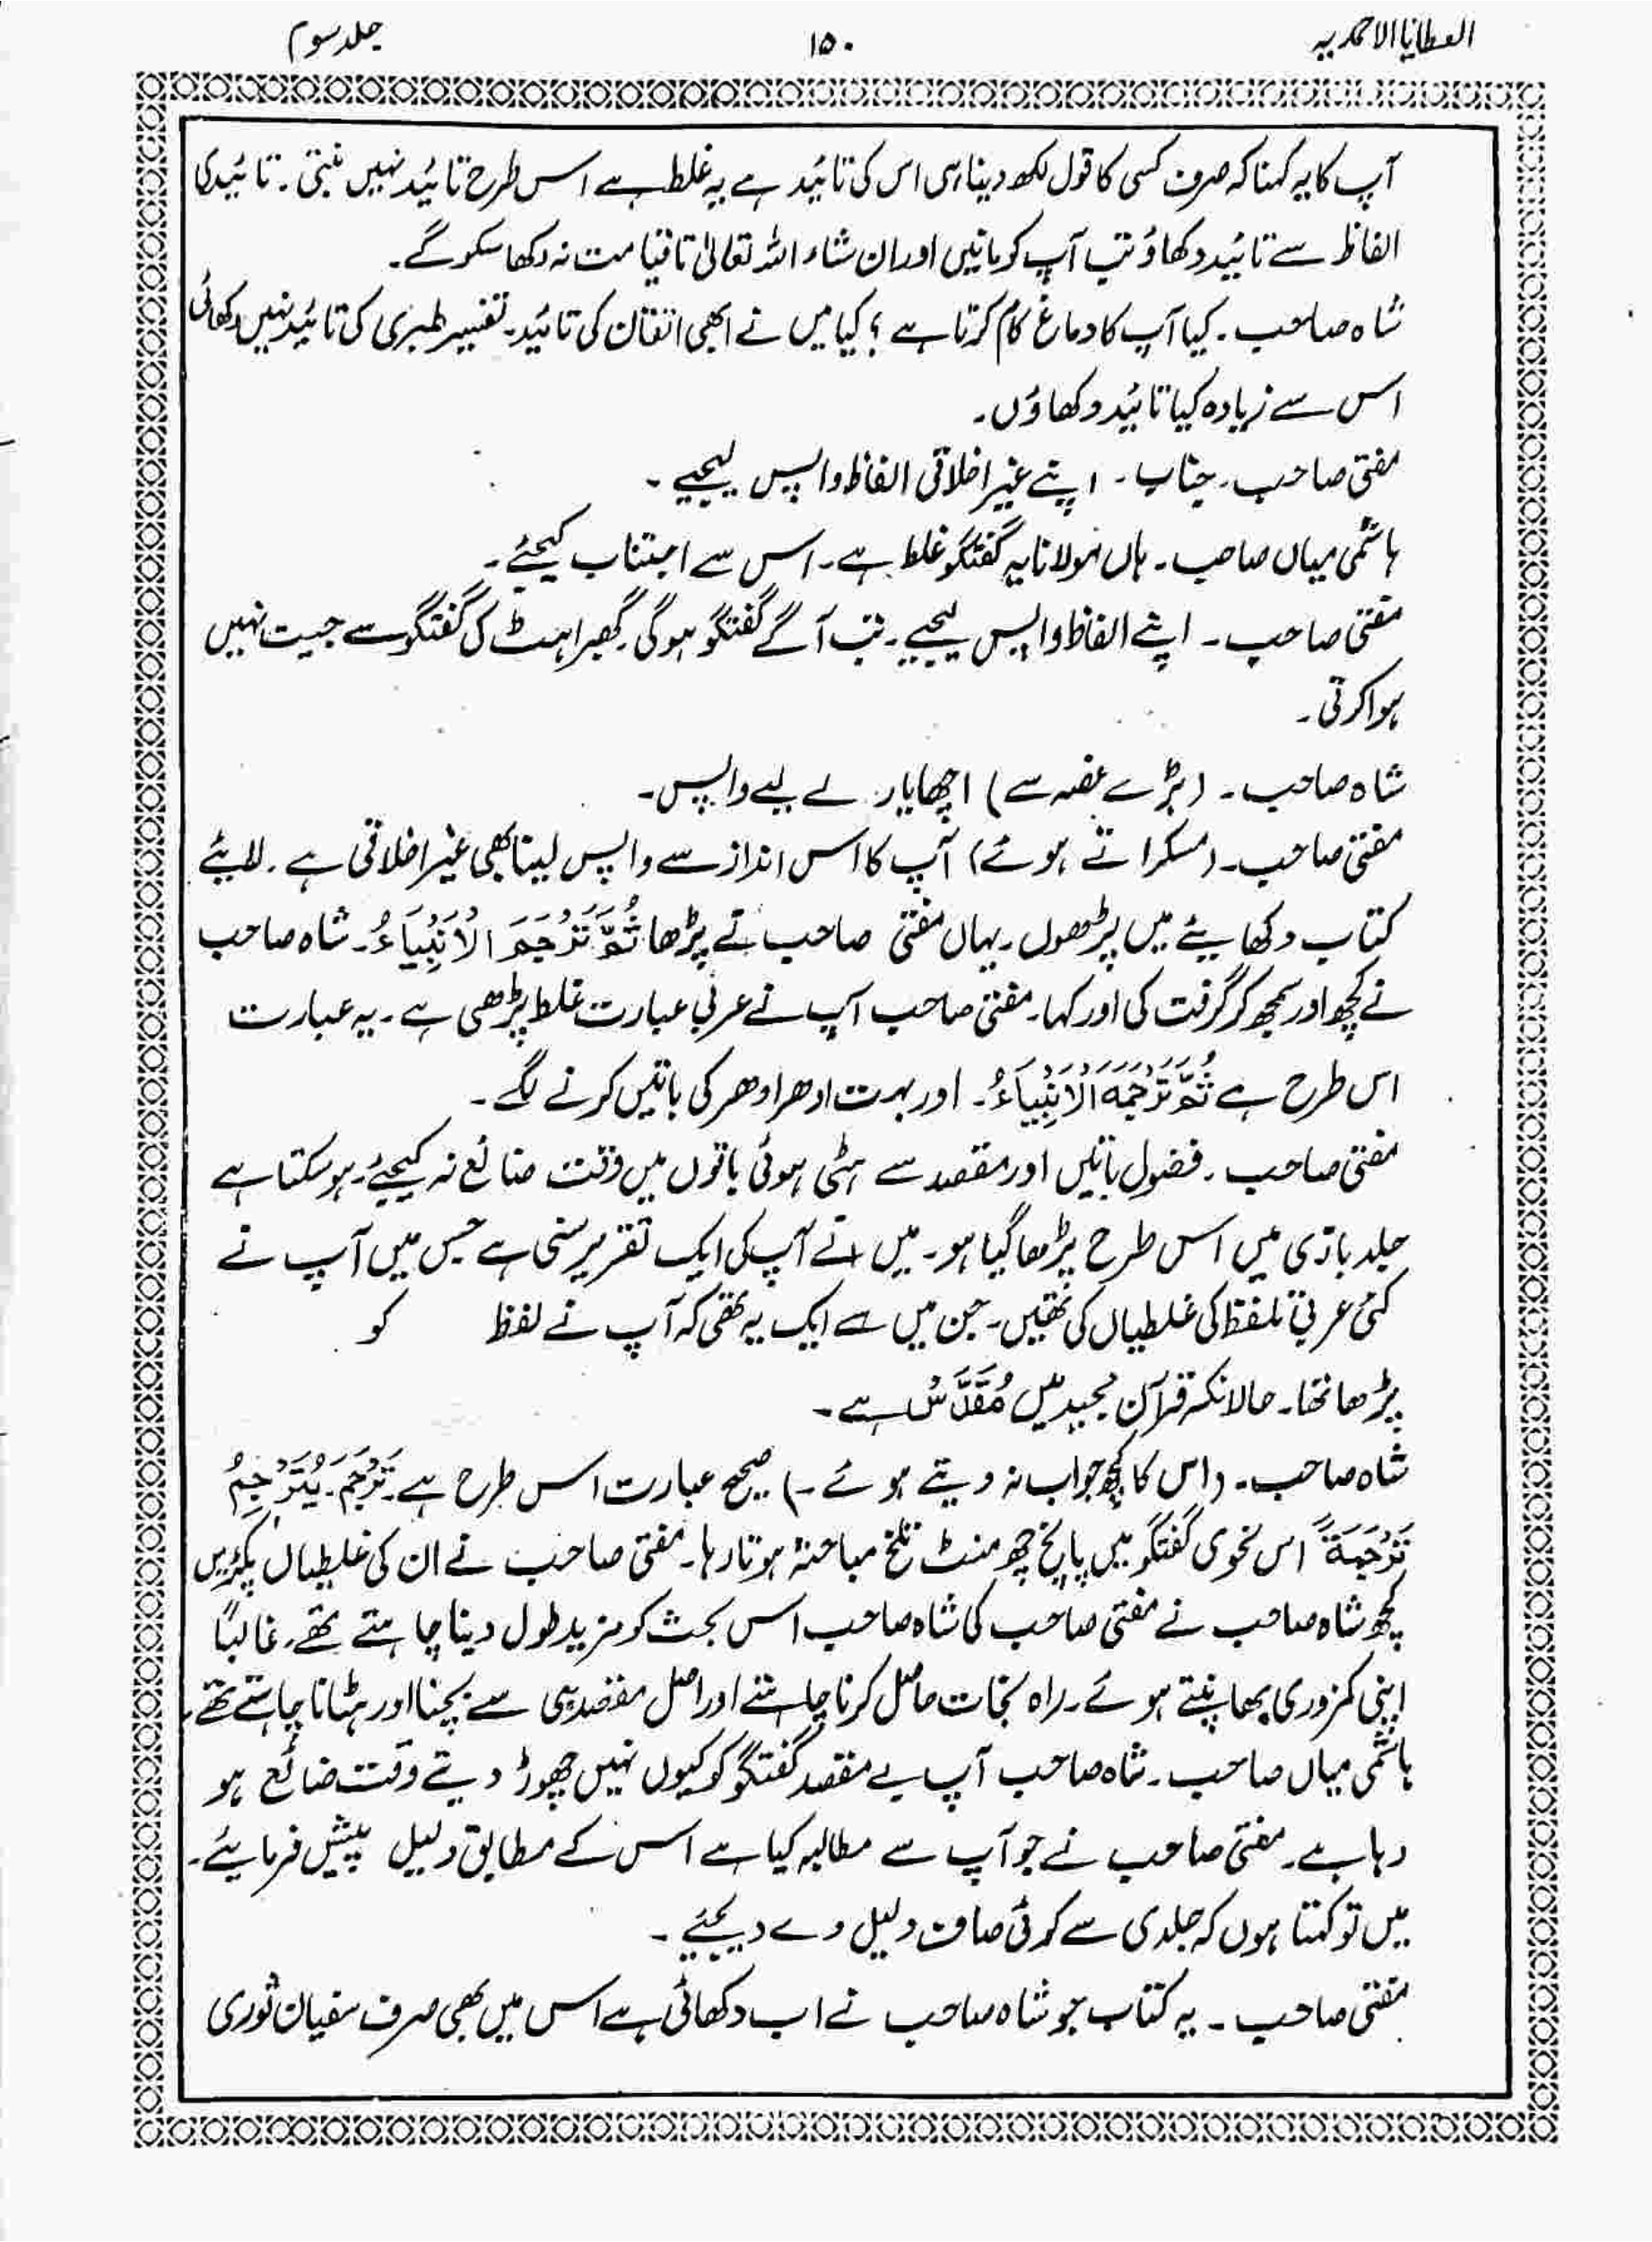 العطایا الاحمدیہ
۱۵۰
جلد سوم
آپ کا یہ کہنا کہ صرف کسی کا قول لکھ دینا ہی اس کی تائید ہے یہ غلط ہے اس طرح تائید نہیں بنتی۔ تائیدی
الفاظ سے تائید دکھاؤ تب آپ کو مانیں اور ان شاء اللہ تعالیٰ تا قیامت نہ دکھا سکو گے۔
شاہ صاحب۔ کیا آپ کا دماغ کام کرتا ہے ؟ کیا میں نے ابھی اتقان کی تائید۔ تفسیر طبری کی تائید نہیں دکھائی
اس سے زیادہ کیا تائید دکھاؤں۔
مفتی صاحب۔ جناب۔ اپنے غیر اخلاقی الفاظ واپس لیجیے۔
ہاشمی میاں صاحب۔ ہاں مولانا یہ گفتگو غلط ہے۔ اس سے اجتناب کیجئے۔
مفتی صاحب۔ اپنے الفاظ واپس لیجیے۔ تب آگے گفتگو ہوگی۔ گھبراہٹ کی گفتگو سے جیت نہیں
ہوا کرتی۔
شاہ صاحب۔ (بڑے غصہ سے) اچھا یار لے لیے واپس۔
مفتی صاحب۔ (مسکراتے ہوئے) آپ کا اس انداز سے واپس لینا بھی غیر اخلاقی ہے۔ لائیے
کتاب دکھایئے میں پڑھوں۔ یہاں مفتی صاحب نے پڑھا ثُمَّ تَرْجَمَ الْاَنْبِیَاءُ۔ شاہ صاحب
نے کچھ اور سمجھ کر گرفت کی اور کہا۔ مفتی صاحب آپ نے عربی عبارت غلط پڑھی ہے۔ یہ عبارت
اس طرح ہے ثُمَّ تَرْجَمَهُ الْاَنْبِیَاءُ۔ اور بہت ادھر ادھر کی باتیں کرنے لگے۔
مفتی صاحب۔ فضول باتیں اور مقصد سے ہٹی ہوئی باتوں میں وقت ضائع نہ کیجیے۔ ہو سکتا ہے
جلد بازی میں اس طرح پڑھا گیا ہو۔ میں نے آپ کی ایک تقریر سنی ہے جس میں آپ نے
کئی عربی تلفظ کی غلطیاں کی تھیں۔ جن میں سے ایک یہ تھی کہ آپ نے لفظ کو
پڑھا تھا۔ حالانکہ قرآن مجید میں مُقَدَّسْ ہے۔
شاہ صاحب۔ (اس کا کچھ جواب نہ دیتے ہوئے۔) صحیح عبارت اس طرح ہے۔ تَرْجَمَ۔ یُتَرْجِمُ
تَرْجَمَةً اس نحوی گفتگو میں پانچ چھ منٹ تلخ مباحثہ ہوتا رہا۔ مفتی صاحب نے ان کی غلطیاں پکڑیں
کچھ شاہ صاحب نے مفتی صاحب کی شاہ صاحب اس بحث کو مزید طول دینا چاہتے تھے۔ غالباً
اپنی کمزوری بھانپتے ہوئے۔ راہ نجات حاصل کرنا چاہتے اور اصل مقصد ہی سے بچنا اور ہٹانا چاہتے تھے۔
ہاشمی میاں صاحب۔ شاہ صاحب آپ بے مقصد گفتگو کو کیوں نہیں چھوڑ دیتے وقت ضائع ہو
رہا ہے۔ مفتی صاحب نے جو آپ سے مطالبہ کیا ہے اس کے مطابق دلیل پیش فرمایئے۔
میں تو کہتا ہوں کہ جلدی سے کوئی صاف دلیل دے دیجئے۔
مفتی صاحب۔ یہ کتاب جو شاہ صاحب نے اب دکھائی ہے اس میں بھی صرف سفیان ثوری